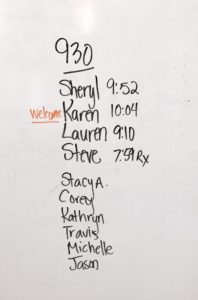 930
Sheryl 9:52
Welcome Karen 10:04
Lauren 9:10
Steve 7:59 Rx
Stacy A.
Corey
Kathryn
Travis
Michelle
Jason